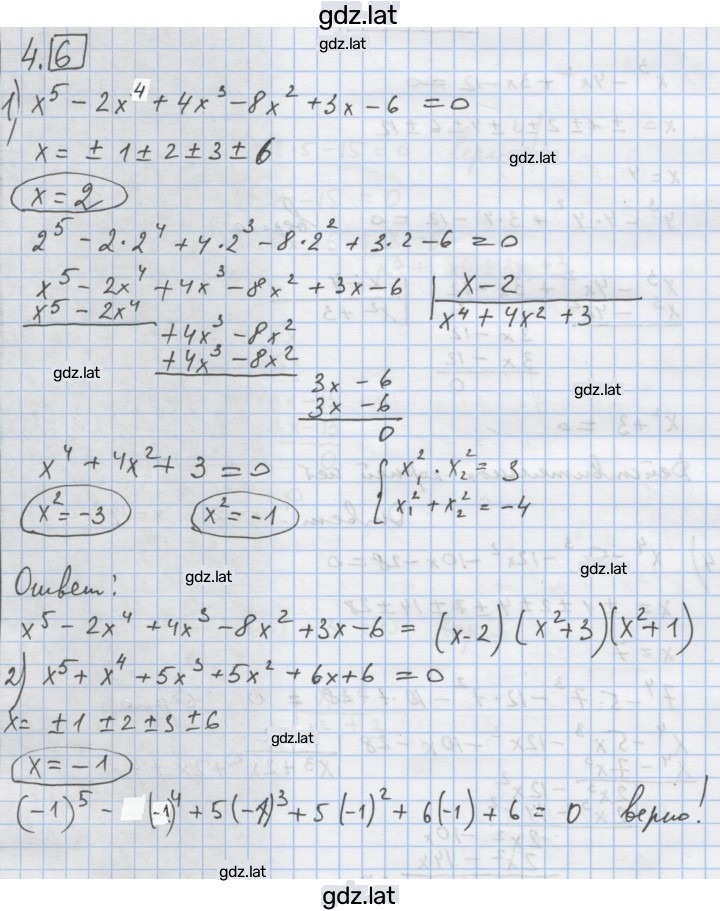 gdz.lat
gdz.lat
4. 6
1) x⁵ − 2x⁴ + 4x³ − 8x² + 3x − 6 = 0
x = ± 1 ± 2 ± 3 ± 6
gdz.lat
x = 2
2⁵ − 2·2⁴ + 4·2³ − 8·2² + 3·2 − 6 = 0
x⁵ − 2x⁴ + 4x³ − 8x² + 3x − 6 | x − 2
x⁵ − 2x⁴ x⁴ + 4x² + 3
+ 4x³ − 8x²
+ 4x³ − 8x²
gdz.lat
3x − 6
gdz.lat
3x − 6
0
x⁴ + 4x² + 3 = 0 { x₁² · x₂² = 3
x² = −3 x² = −1 x₁² + x₂² = −4
gdz.lat
gdz.lat
Ответ:
x⁵ − 2x⁴ + 4x³ − 8x² + 3x − 6 = (x−2)(x²+3)(x²+1)
2) x⁵ + x⁴ + 5x³ + 5x² + 6x + 6 = 0
x = ± 1 ± 2 ± 3 ± 6
gdz.lat
x = −1
(−1)⁵ − (−1)⁴ + 5(−1)³ + 5(−1)² + 6(−1) + 6 = 0 верно!
gdz.lat
gdz.lat